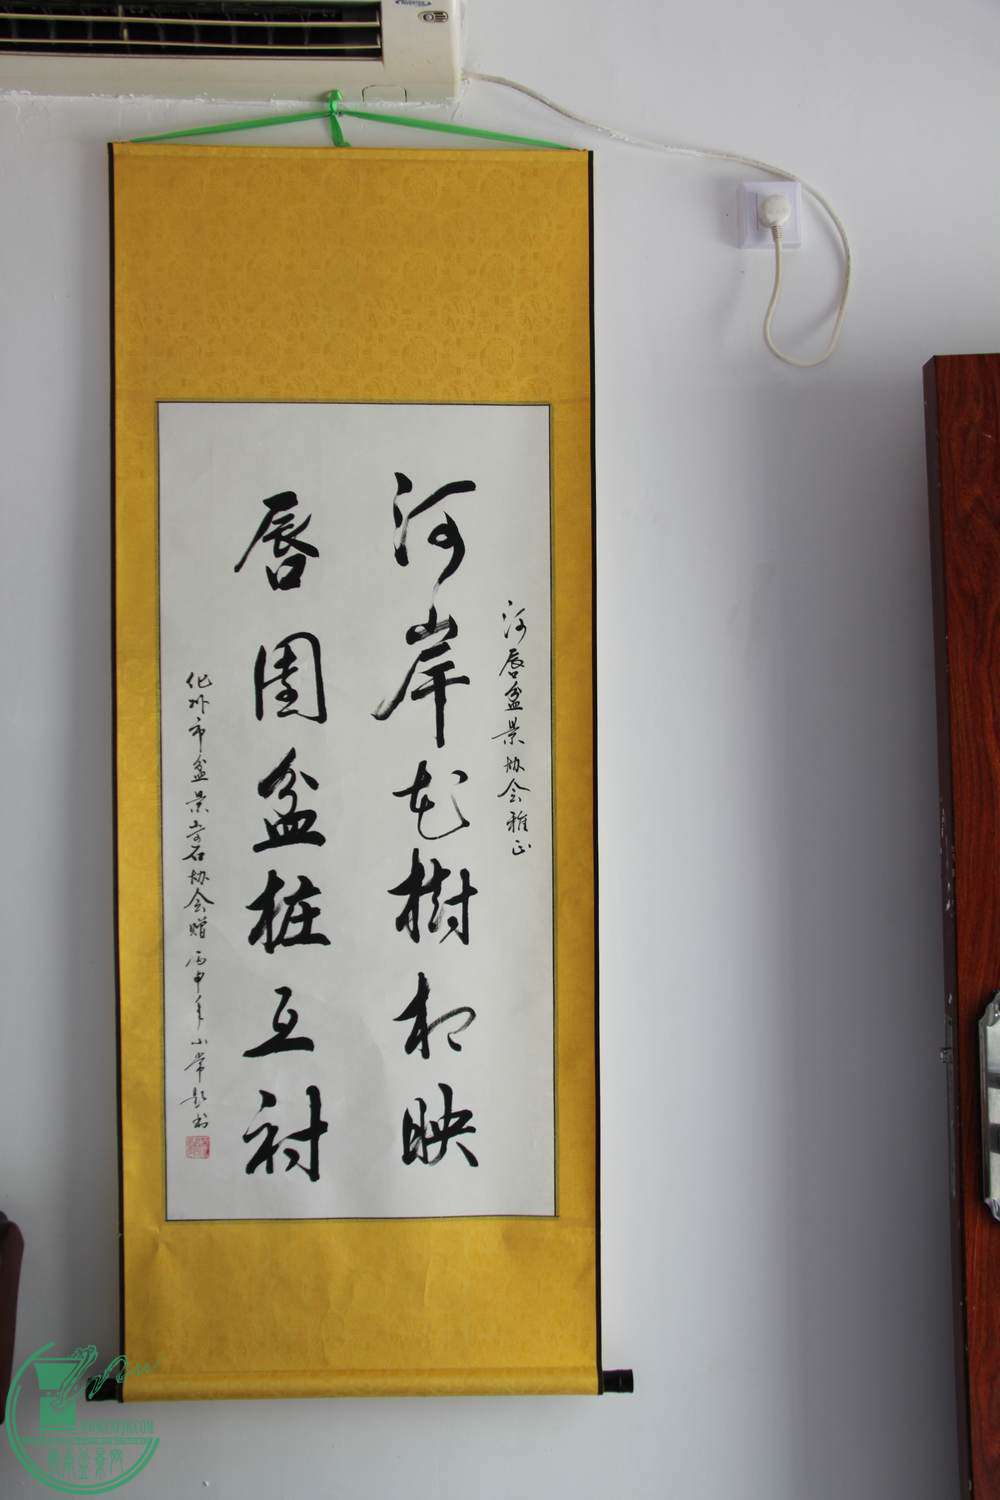 河唇盆景协会雅正
河岸花樹相映
唇園盆桩互衬
化州市盆景奇石协会赠 丙申年 小常题书